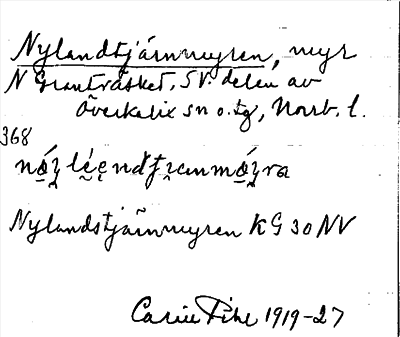 Nylandtjärnmyren, myr
N Granträsket, SV. delen av
Överkalix sn o. tg, Norrb. l.
368
Nylandstjärnmyren KG 30 NV
Carin Pihl 1919-27